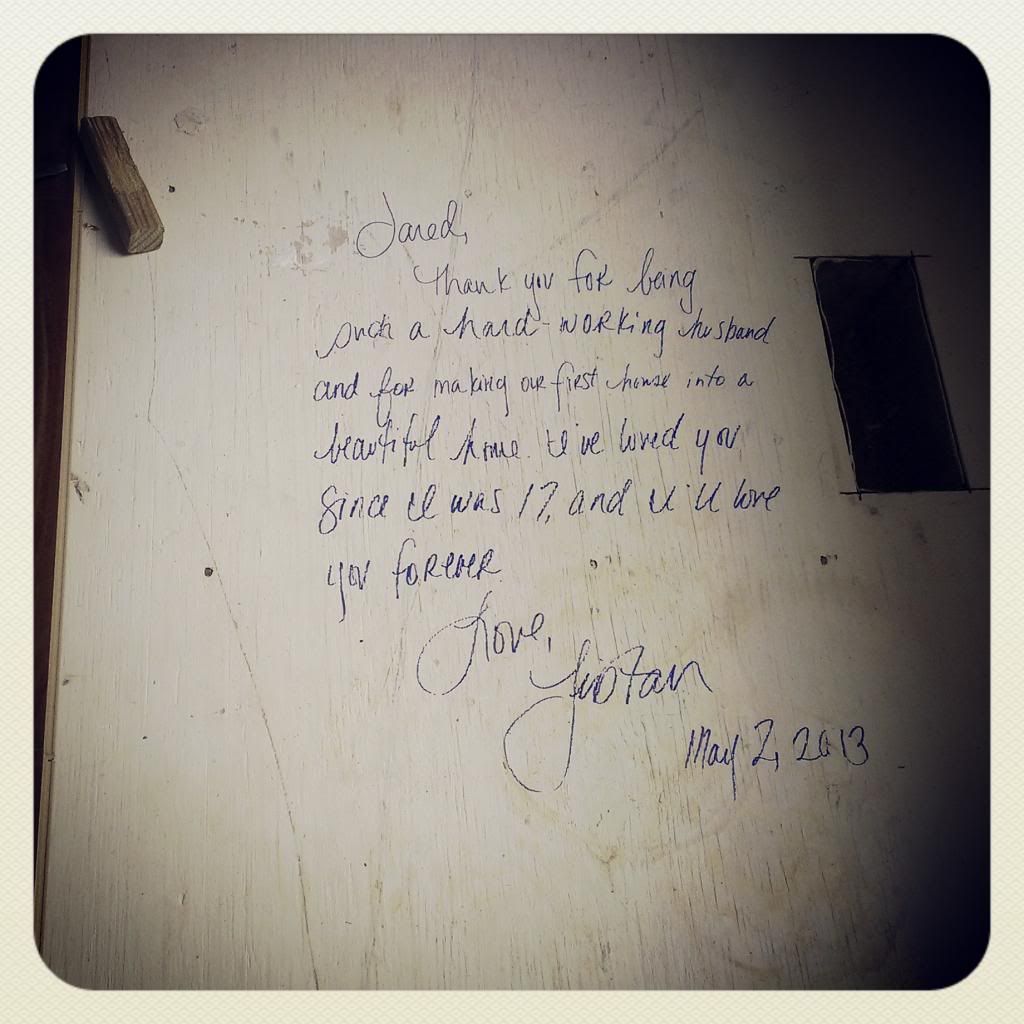 Jared,
Thank you for being
such a hard-working husband
and for making our first house into a
beautiful home. I've loved you
since I was 17, and I'll love
you forever.
Love,
May 2, 2013